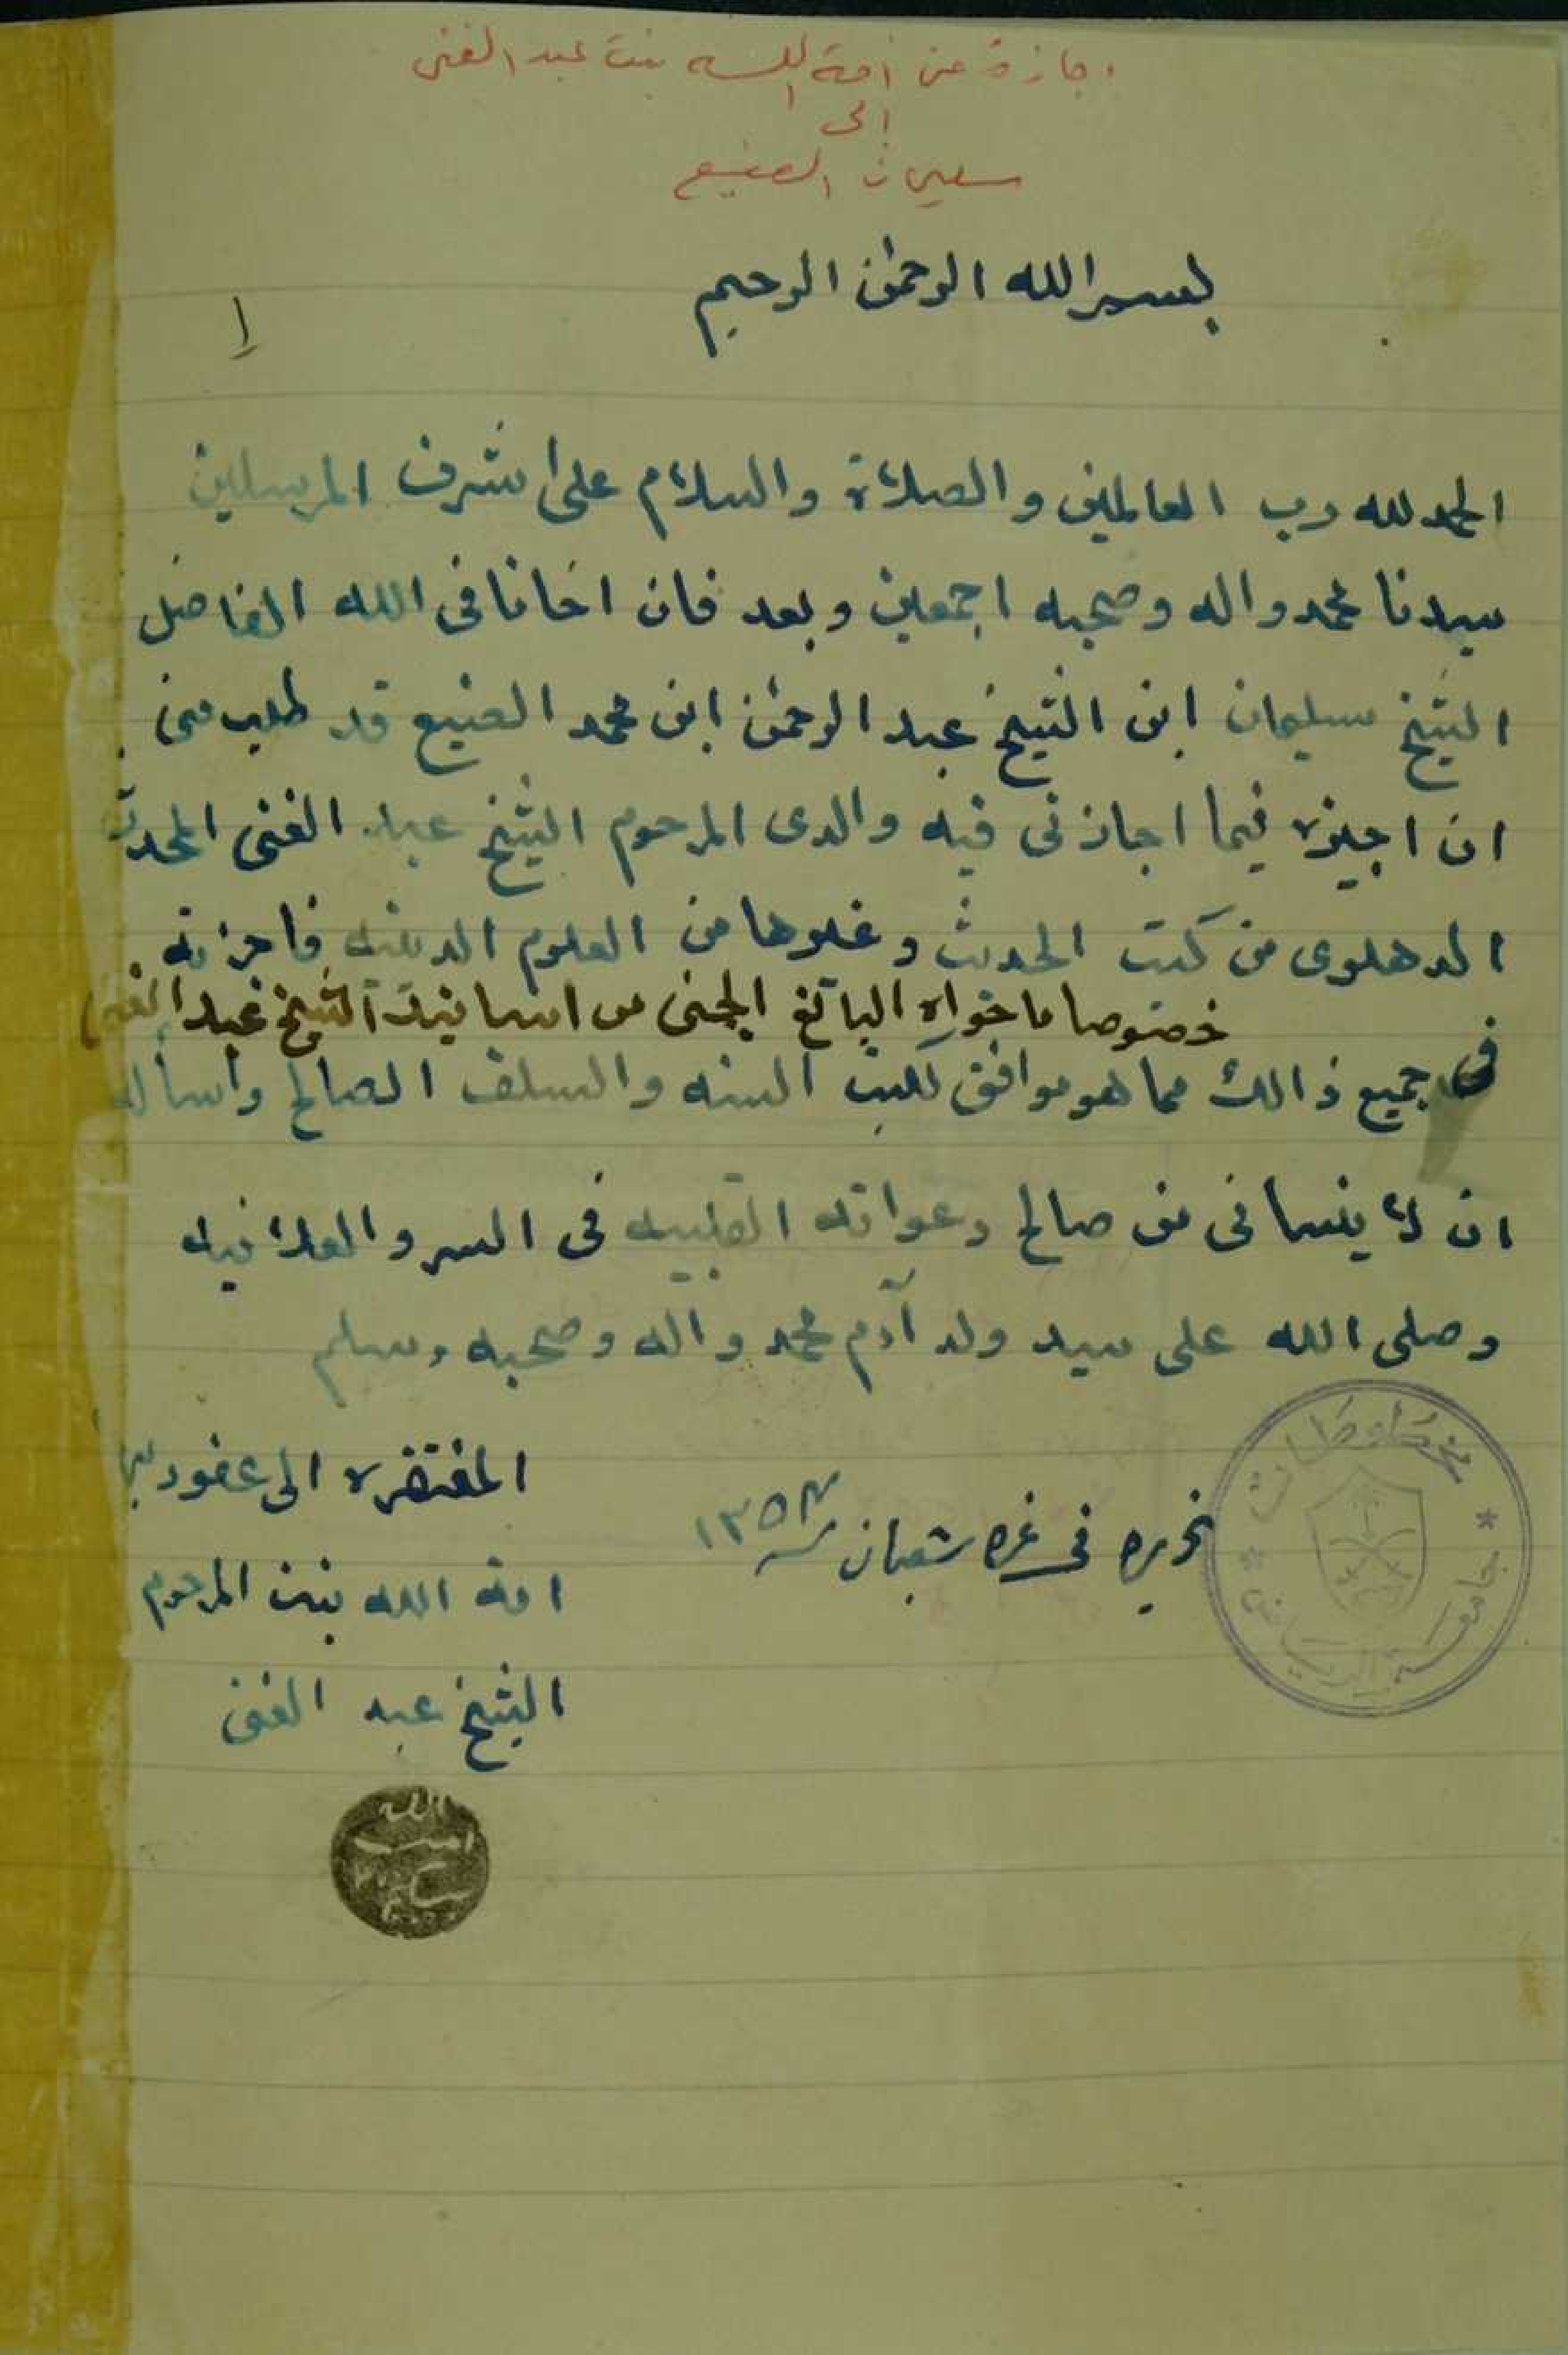 اجازة من أمة الله بنت عبد الغنى
الى
سليمان الصنيع
بسم الله الرحمن الرحيم
١
الحمد لله رب العالمين والصلاة والسلام على اشرف المرسلين
سيدنا محمد واله وصحبه اجمعين وبعد فان اخانا فى الله الفاضل
الشيخ سليمان ابن الشيخ عبد الرحمن ابن محمد الصنيع قد طلب منى
ان اجيزه فيما اجازنى فيه والدى المرحوم الشيخ عبد الغنى المحدث
الدهلوى من كتب الحديث وغيرها من العلوم الدينيه فاجزته
خصوصا ما حواه اليانع الجنى من اسانيد الشيخ عبد الغنى
فى جميع ذالك مما هو موافق لكتب السنه والسلف الصالح واسأله
ان لا ينسانى من صالح دعواته القلبيه فى السر والعلانيه
وصلى الله على سيد ولد آدم محمد واله وصحبه وسلم
المفتقره الى عفو ربها
تحريره فى غره شعبان سنة ١٣٥٣
امة الله بنت المرحوم
الشيخ عبد الغنى
مخطوطات
جامعة الرياض
الله
امة